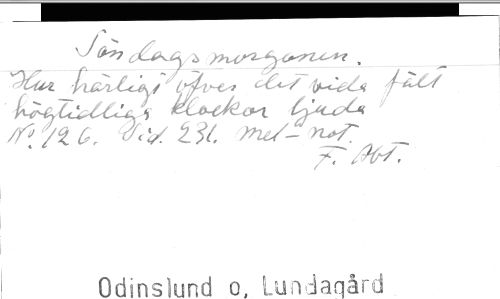 Söndagsmorgonen.
Hur härligt öfver det vida fält
högtidliga klockor ljuda
No. 126. Sid. 231. mel-not.
F. Abt.
Odinslund o, Lundagård